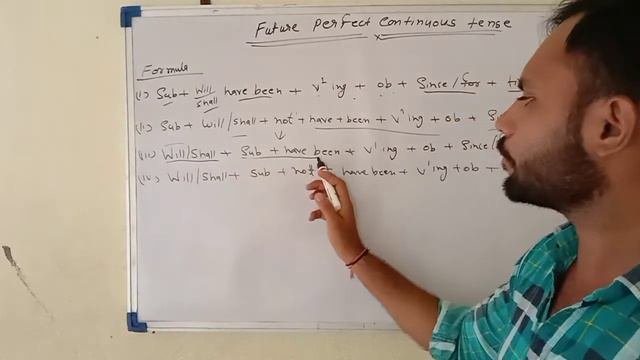 Future perfect continuous tense
Formula
(i) Sub + will/shall have been + v¹ ing + ob + Since/for +
(ii) Sub + will/shall + not + have + been + v¹ ing + ob +
(iii) Will/Shall + Sub + have been + v¹ ing + ob + Since/
(iv) Will/Shall + sub + not + have been + v¹ ing + ob +